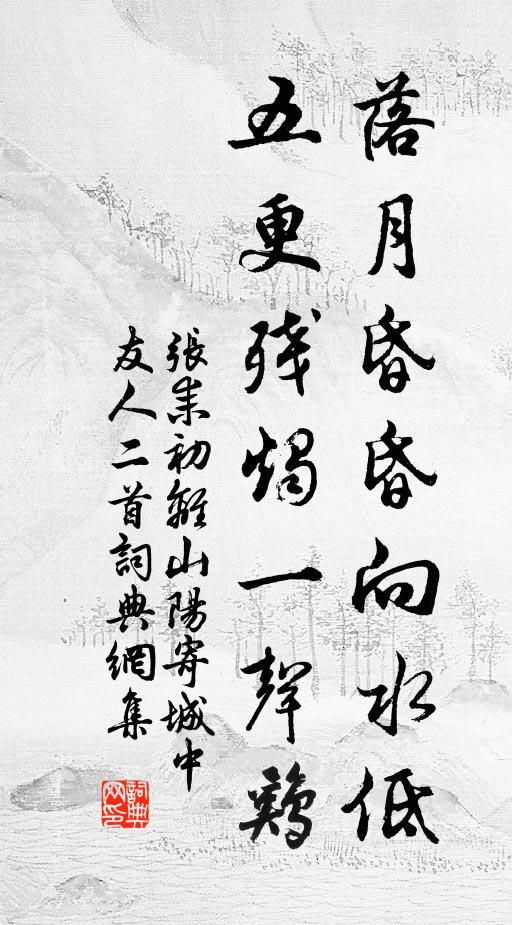 落月昏昏向水低
五更残燭一聲鷄
張耒初離山陽寄城中
友人二首詞典網集
詞典網印